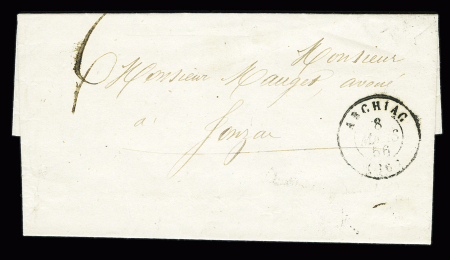 Monsieur
Monsieur Mauget, avoué
a
Jonzac
ARCHIAC
8
66
(16)